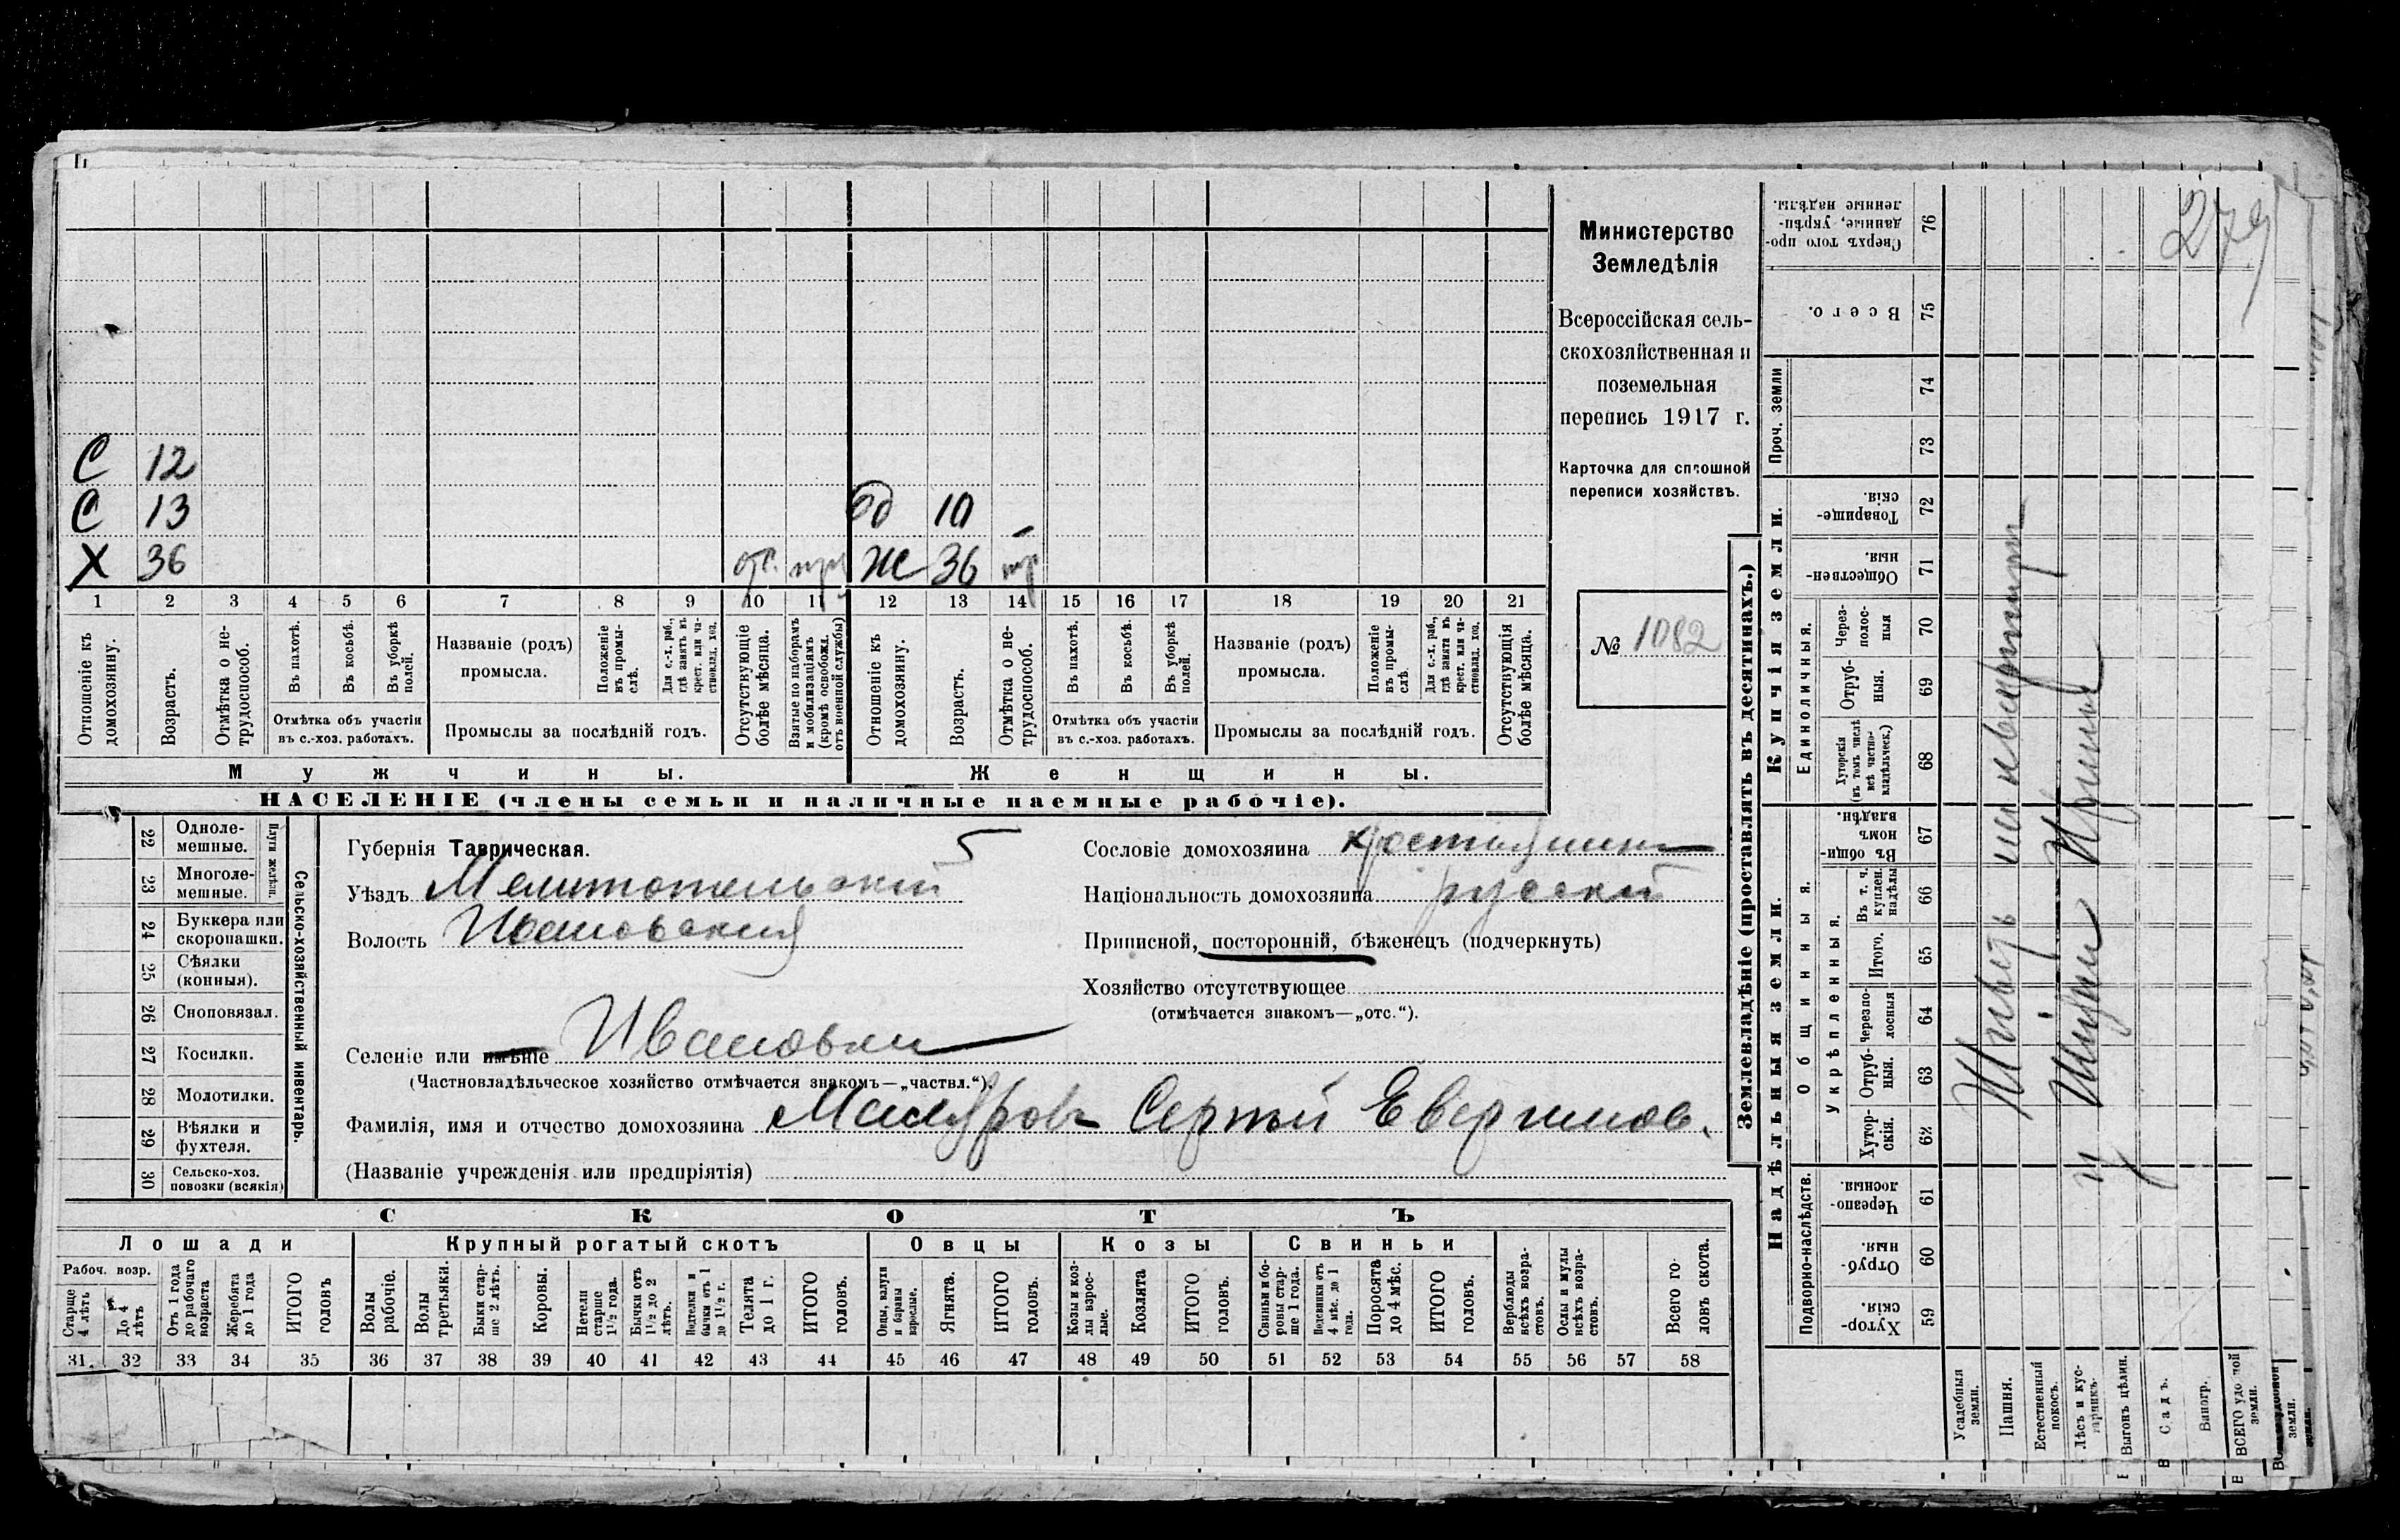 279
С 12
С 13
Х 36 от. пр
10
Ж 36
1 2 3 4 5 6 7 8 9 10 11 12 13 14 15 16 17 18 19 20 21
Отношеніе къ домохозяину.
Возрастъ.
Отмѣтка о нетрудоспособ.
Въ пахотѣ.
Въ косьбѣ.
Въ уборкѣ полей.
Отмѣтка объ участіи
въ с.-хоз. работахъ.
Названіе (родъ)
промысла.
Положеніе въ промыслѣ.
Для с.-х. раб., гдѣ занятъ въ крест. или частновлад. хоз.
Промыслы за послѣдній годъ.
Отсутствующіе болѣе мѣсяца.
Взятые по наборамъ и мобилизаціямъ (кромѣ освобожд. отъ военной службы)
Отношеніе къ домохозяину.
Возрастъ.
Отмѣтка о нетрудоспособ.
Въ пахотѣ.
Въ косьбѣ.
Въ уборкѣ полей.
Отмѣтка объ участіи
въ с.-хоз. работахъ.
Названіе (родъ)
промысла.
Положеніе въ промыслѣ.
Для с.-х. раб., гдѣ занята въ крест. или частновлад. хоз.
Промыслы за послѣдній годъ.
Отсутствующія болѣе мѣсяца.
Мужчины. Женщины.
НАСЕЛЕНІЕ (члены семьи и наличные наемные рабочіе).
Министерство
Земледѣлія
Всероссійская сель-
скохозяйственная и
поземельная
перепись 1917 г.
Карточка для сплошной
переписи хозяйствъ.
№ 1082
22 Одноле-
мешные.
23 Многоле-
мешные.
Плуги желѣзн.
24 Буккера или
скоропашки.
25 Сѣялки
(конныя).
26 Сноповязал.
27 Косилки.
28 Молотилки.
29 Вѣялки и
фухтеля.
30 Сельско-хоз.
повозки (всякія)
Сельско-хозяйственный инвентарь.
Губернія Таврическая.
Уѣздъ Мелитопольскій
Волость Ивановская
Селеніе или имѣніе Ивановка
(Частновладѣльческое хозяйство отмѣчается знакомъ—„частвл.“).
Фамилія, имя и отчество домохозяина Сергѣй
(Названіе учрежденія или предпріятія)
Сословіе домохозяина крестьянинъ
Національность домохозяина русскій
Приписной, посторонній, бѣженецъ (подчеркнуть)
Хозяйство отсутствующее
(отмѣчается знакомъ—„отс.“).
СКОТЪ
Лошади Крупный рогатый скотъ Овцы Козы Свиньи
Рабоч. возр.
Старше 4 лѣтъ
До 4 лѣтъ
Отъ 1 года до рабочаго возраста
Жеребята до 1 года
ИТОГО головъ
Волы рабочіе.
Волы третьяки.
Быки старше 2 лѣтъ.
Коровы.
Нетели старше 1½ года.
Бычки отъ 1½ до 2 лѣтъ.
Подтелки и бычки отъ 1 до 1½ г.
Телята до 1 г.
ИТОГО головъ.
Овцы, валухи и бараны взрослые.
Ягнята.
ИТОГО головъ.
Козы и козлы взрослые.
Козлята
ИТОГО головъ.
Свиньи и боровы старше 1 года.
Подсвинки отъ 4 мѣс. до 1 года.
Поросята до 4 мѣс.
ИТОГО головъ.
Верблюды всѣхъ возрастовъ.
Ослы и мулы всѣхъ возрастовъ.
Всего головъ скота.
31 32 33 34 35 36 37 38 39 40 41 42 43 44 45 46 47 48 49 50 51 52 53 54 55 56 57 58
Землевладѣніе (проставлять въ десятинахъ.)
Надѣльныя земли. Купчія земли.
Подворно-наслѣдств.
Общинныя.
Укрѣпленныя.
Единоличныя.
Проч. земли
Хуторскія. 59
Отрубныя. 60
Черезполосныя. 61
Хуторскія. 62
Отрубныя. 63
Черезполосныя 64
Итого. 65
Въ т. ч. куплен. надѣлы 66
Въ общинномъ владѣн. 67
Хуторскія (въ томъ числѣ всѣ частновладѣльческ.) 68
Отрубныя. 69
Черезполосныя 70
Общественныя. 71
Товарищескія. 72
73
74
Всего. 75
Сверхъ того проданные, укрѣпленные надѣлы. 76
Усадебныя земли.
Пашня.
Естественный покосъ.
Лѣсъ и кустарникъ.
Выгонъ цѣлин.
Садъ.
Виногр.
ВСЕГО удобной земли.
Живетъ на квартирѣ